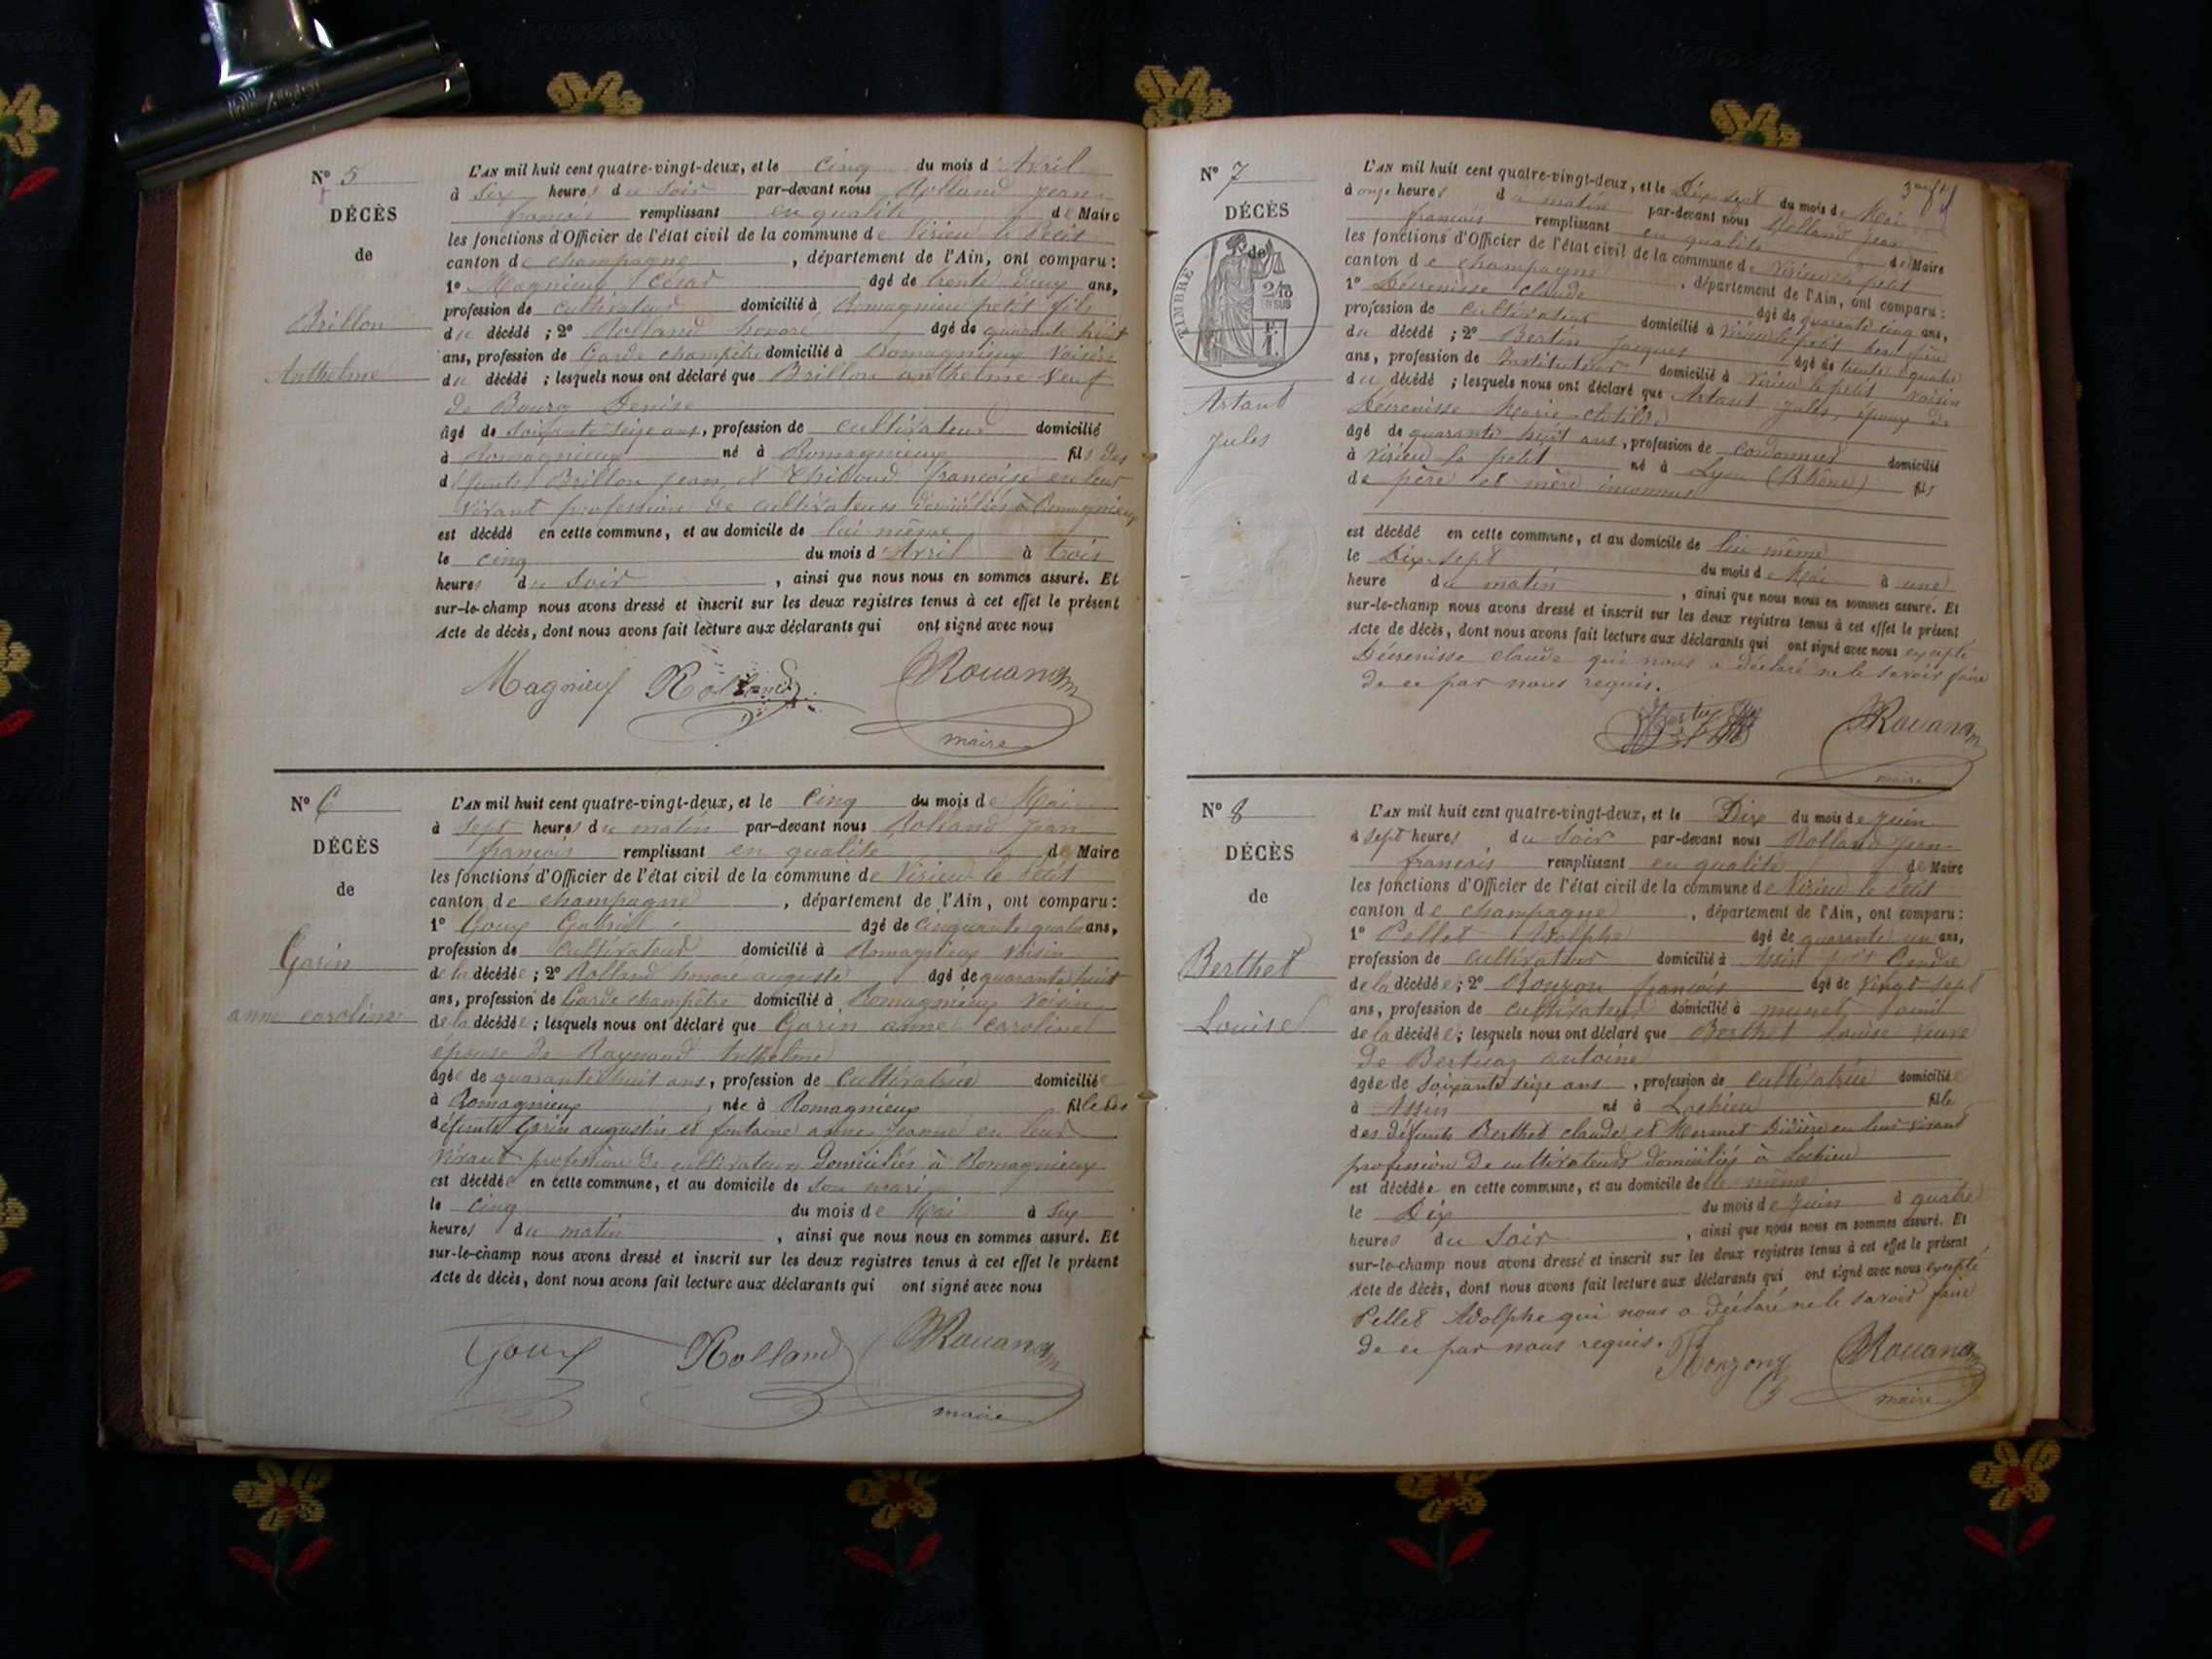 N° 5
DÉCÈS
de
Brillon
Anthelme
L'AN mil huit cent quatre-vingt-deux, et le cinq du mois d'Avril
à Six heures du soir par-devant nous Rolland jean
françois remplissant en qualité de Maire
les fonctions d'Officier de l'état civil de la commune de Virieu le Petit
canton de champagne, département de l'Ain, ont comparu:
1° Magnieux César âgé de trente deux ans,
profession de cultivateur domicilié à Romagnieu petit fils
du décédé; 2° Rolland honoré âgé de quarante huit
ans, profession de Garde champêtre domicilié à Romagnieux voisin
du décédé; lesquels nous ont déclaré que Brillon anthelme veuf
de Bourg Denise
âgé de soixante seize ans, profession de cultivateur domicilié
à Romagnieux né à Romagnieux fils des
défunts Brillon jean, et françoise en leur
vivant profession de cultivateurs domiciliés à Romagnieux
est décédé en cette commune, et au domicile de lui même
le cinq du mois d'Avril à trois
heures du soir, ainsi que nous nous en sommes assuré. Et
sur-le-champ nous avons dressé et inscrit sur les deux registres tenus à cet effet le présent
Acte de décès, dont nous avons fait lecture aux déclarants qui ont signé avec nous
Magnieux Rolland
maire
N° 6
DÉCÈS
de
Garin
anne caroline
L'AN mil huit cent quatre-vingt-deux, et le cinq du mois de Mai
à sept heures du matin par-devant nous Rolland jean
françois remplissant en qualité de Maire
les fonctions d'Officier de l'état civil de la commune de Virieu le Petit
canton de champagne, département de l'Ain, ont comparu:
1° Goux Gabriel âgé de cinquante quatre ans,
profession de cultivateur domicilié à Romagnieux voisin
de la décédée; 2° Rolland honoré auguste âgé de quarante huit
ans, profession de Garde champêtre domicilié à Romagnieux voisin
de la décédée; lesquels nous ont déclaré que Garin anne caroline
épouse de Raynaud Anthelme
âgée de quarante huit ans, profession de cultivatrice domiciliée
à Romagnieux, née à Romagnieux fille des
défunts Garin augustin et fontaine anne jeanne en leur
vivant profession de cultivateurs domiciliés à Romagnieux
est décédée en cette commune, et au domicile de son mari
le cinq du mois de Mai à six
heures du matin, ainsi que nous nous en sommes assuré. Et
sur-le-champ nous avons dressé et inscrit sur les deux registres tenus à cet effet le présent
Acte de décès, dont nous avons fait lecture aux déclarants qui ont signé avec nous
Goux Rolland
maire
N° 7
DÉCÈS
de
TIMBRE
2/10
EN SUS
F.
1.
Artaut
Jules
L'AN mil huit cent quatre-vingt-deux, et le Dix sept du mois de Mai
à onze heures du matin par-devant nous Rolland jean
françois remplissant en qualité de Maire
les fonctions d'Officier de l'état civil de la commune de Virieu le petit
canton de champagne, département de l'Ain, ont comparu:
1° Décrenisse claude âgé de quarante cinq ans,
profession de cultivateur domicilié à Virieu le petit beau frère
du décédé; 2° Bertin Jacques âgé de trente quatre
ans, profession de Instituteur domicilié à Virieu le petit voisin
du décédé; lesquels nous ont déclaré que Artaut Jules, époux de
Décrenisse Marie clotilde
âgé de quarante huit ans, profession de cordonnier domicilié
à Virieu le petit né à Lyon (Rhône) fils
de père et mère inconnus
est décédé en cette commune, et au domicile de lui même
le Dix-sept du mois de Mai à une
heure du matin, ainsi que nous nous en sommes assuré. Et
sur-le-champ nous avons dressé et inscrit sur les deux registres tenus à cet effet le présent
Acte de décès, dont nous avons fait lecture aux déclarants qui ont signé avec nous excepté
Décrenisse claude qui nous a déclaré ne le savoir faire
de ce par nous requis.
maire
N° 8
DÉCÈS
de
Berthet
Louise
L'AN mil huit cent quatre-vingt-deux, et le Dix du mois de juin
à sept heures du soir par-devant nous Rolland jean
françois remplissant en qualité de Maire
les fonctions d'Officier de l'état civil de la commune de Virieu le Petit
canton de champagne, département de l'Ain, ont comparu:
1° Pellet Adolphe âgé de quarante un ans,
profession de cultivateur domicilié à Assin
de la décédée; 2° Ronzon françois âgé de vingt sept
ans, profession de cultivateur domicilié à munet, ami
de la décédée; lesquels nous ont déclaré que Berthet Louise veuve
de antoine
âgée de soixante seize ans, profession de cultivatrice domiciliée
à Assin né à Lochieu fille
des défunts Berthet claude et Mermet en leur vivant
profession de cultivateurs domiciliés à Lochieu
est décédée en cette commune, et au domicile de elle même
le Dix du mois de juin à quatre
heures du soir, ainsi que nous nous en sommes assuré. Et
sur-le-champ nous avons dressé et inscrit sur les deux registres tenus à cet effet le présent
Acte de décès, dont nous avons fait lecture aux déclarants qui ont signé avec nous excepté
Pellet Adolphe qui nous a déclaré ne le savoir faire
de ce par nous requis.
maire